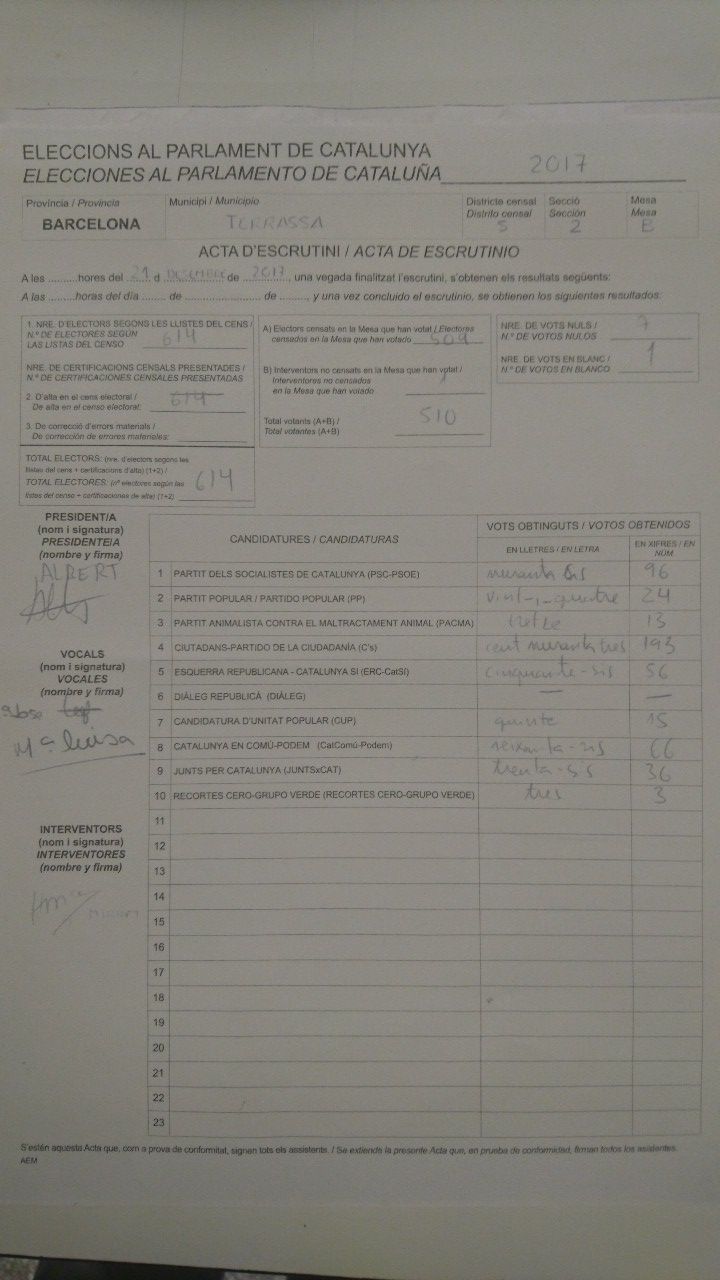 ELECCIONS AL PARLAMENT DE CATALUNYA
ELECCIONES AL PARLAMENTO DE CATALUÑA 2017
Província / Provincia Municipi / Municipio Districte censal Secció Mesa
Distrito censal Sección Mesa
BARCELONA TERRASSA 5 2 B
ACTA D'ESCRUTINI / ACTA DE ESCRUTINIO
A les ..........hores del 21 d DESEMBRE de 2017, una vegada finalitzat l'escrutini, s'obtenen els resultats següents:
A las ..........horas del día ........ de .......................... de ........., y una vez concluido el escrutinio, se obtienen los siguientes resultados:
1. NRE. D'ELECTORS SEGONS LES LLISTES DEL CENS /
N.º DE ELECTORES SEGÚN
LAS LISTAS DEL CENSO 614
NRE. DE CERTIFICACIONS CENSALS PRESENTADES /
N.º DE CERTIFICACIONES CENSALES PRESENTADAS
2. D'alta en el cens electoral /
De alta en el censo electoral: 614
3. De correcció d'errors materials /
De corrección de errores materiales:
TOTAL ELECTORS: (nre. d'electors segons les
llistes del cens + certificacions d'alta) (1+2) /
TOTAL ELECTORES: (nº electores según las
listes del censo + certificaciones de alta) (1+2) 614
A) Electors censats en la Mesa que han votat / Electores
censados en la Mesa que han votado 509
B) Interventors no censats en la Mesa que han votat /
Interventores no censados
en la Mesa que han votado 1
Total votants (A+B) /
Total votantes (A+B) 510
NRE. DE VOTS NULS / 7
N.º DE VOTOS NULOS
NRE. DE VOTS EN BLANC / 1
N.º DE VOTOS EN BLANCO
PRESIDENT/A
(nom i signatura)
PRESIDENTE/A
(nombre y firma)
ALBERT
VOCALS
(nom i signatura)
VOCALES
(nombre y firma)
Mª luisa
INTERVENTORS
(nom i signatura)
INTERVENTORES
(nombre y firma)
CANDIDATURES / CANDIDATURAS VOTS OBTINGUTS / VOTOS OBTENIDOS
EN LLETRES / EN LETRA EN XIFRES / EN NÚM
1 PARTIT DELS SOCIALISTES DE CATALUNYA (PSC-PSOE) noranta sis 96
2 PARTIT POPULAR / PARTIDO POPULAR (PP) vint-i-quatre 24
3 PARTIT ANIMALISTA CONTRA EL MALTRACTAMENT ANIMAL (PACMA) tretze 13
4 CIUTADANS-PARTIDO DE LA CIUDADANÍA (C's) cent noranta tres 193
5 ESQUERRA REPUBLICANA - CATALUNYA SÍ (ERC-CatSí) cinquanta-sis 56
6 DIÀLEG REPUBLICÀ (DIÀLEG) — —
7 CANDIDATURA D'UNITAT POPULAR (CUP) quinze 15
8 CATALUNYA EN COMÚ-PODEM (CatComú-Podem) seixanta-sis 66
9 JUNTS PER CATALUNYA (JUNTSxCAT) trenta-sis 36
10 RECORTES CERO-GRUPO VERDE (RECORTES CERO-GRUPO VERDE) tres 3
11
12
13
14
15
16
17
18
19
20
21
22
23
S'estén aquesta Acta que, com a prova de conformitat, signen tots els assistents. / Se extiende la presente Acta que, en prueba de conformidad, firman todos los asistentes.
AEM